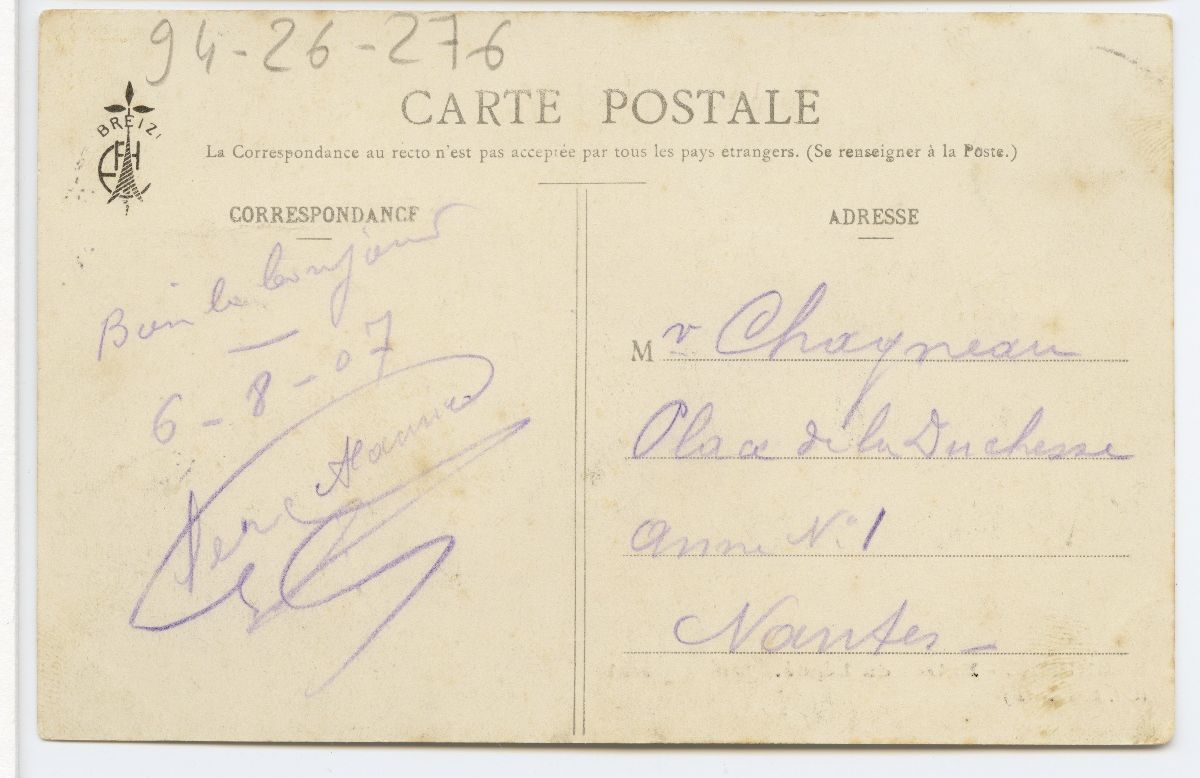 94-26-276
BREIZ
EH
CARTE POSTALE
La Correspondance au recto n'est pas acceptée par tous les pays etrangers. (Se renseigner à la Poste.)
CORRESPONDANCE
Bien le bonjour
6-8-07
ADRESSE
Mr Chagneau
Place de la Duchesse
Anne N° 1
Nantes